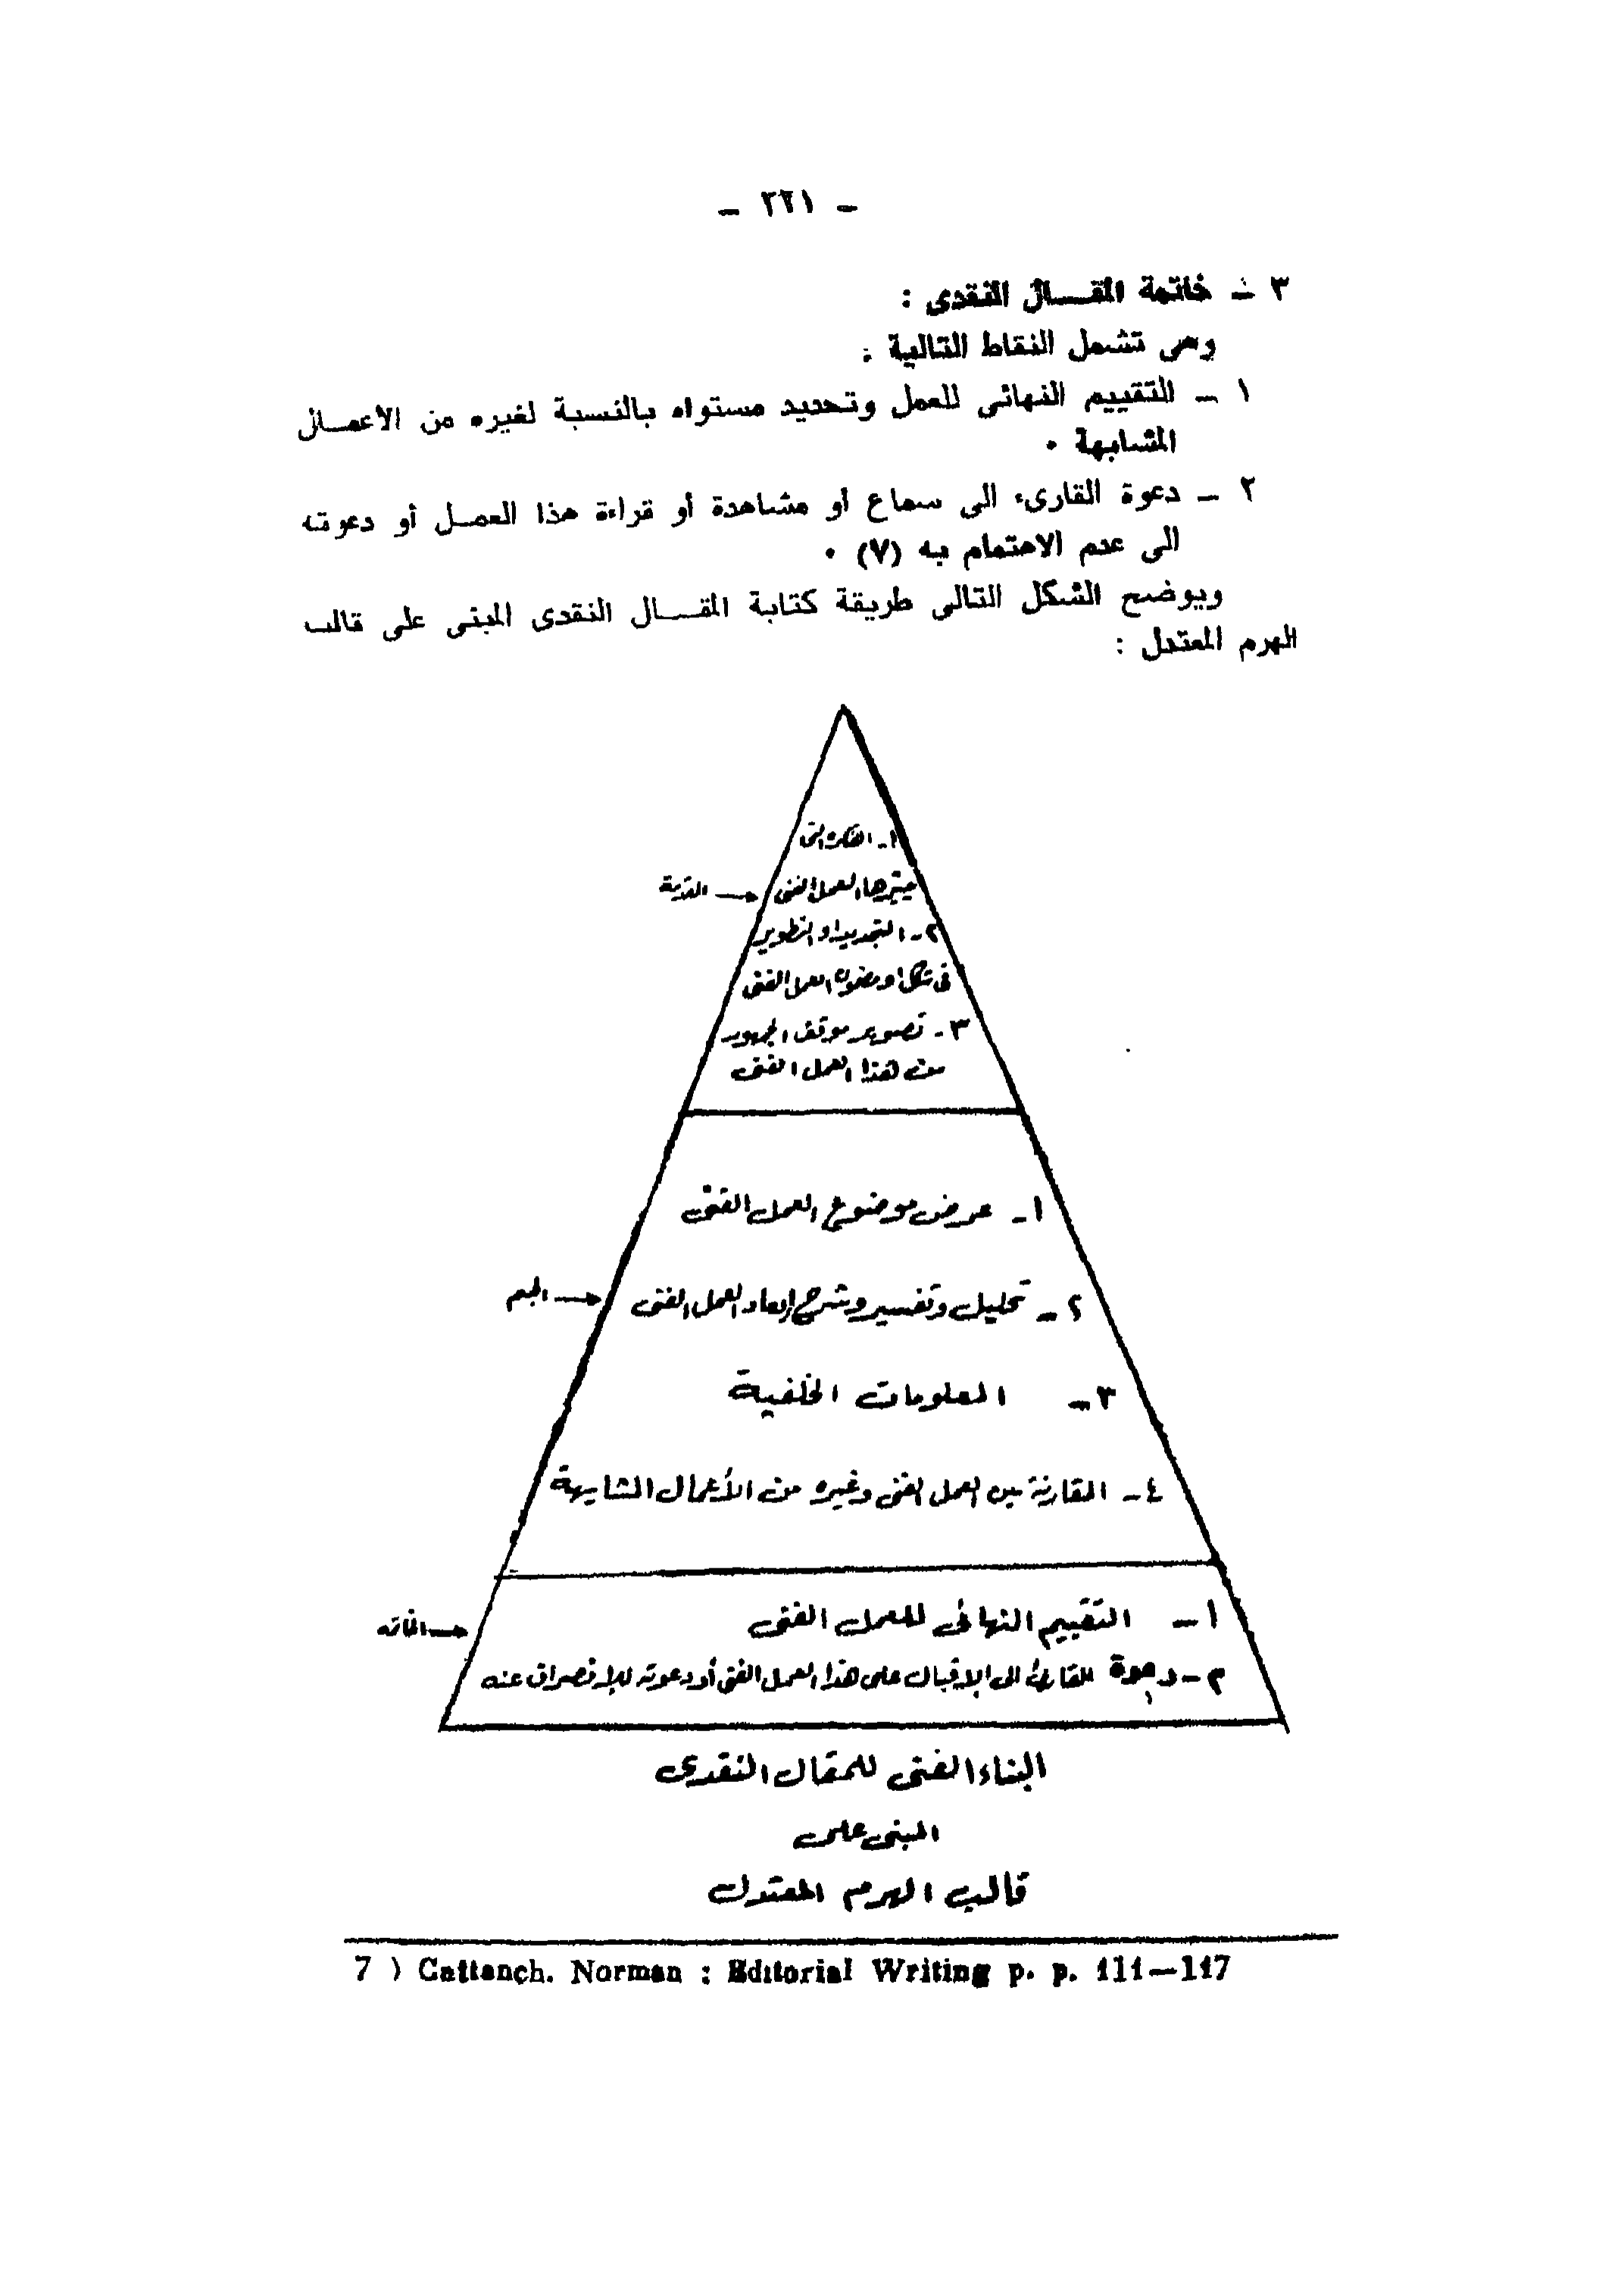 - ٢٢١ -
٣ - خاتمة المقـــال النقدى :
وهى تشمل النقاط التالية :
١ - التقييم النهائى للعمل وتحديد مستواه بالنسبة لغيره من الاعمـــال
المشابهة ٠
٢ - دعوة القارىء الى سماع أو مشاهدة أو قراءة هذا العمـل أو دعوته
الى عدم الاهتمام به (٧) ٠
ويوضح الشكل التالى طريقة كتابة المقـــال النقدى المبنى على قالب
الهرم المعتدل :
١- الفكرة التى
يثيرها العمل الفنى
المقدمة
٢- التجديد او التطوير
فى شكل او مضمون العمل الفنى
٣- تصوير موقف الجمهور
من هذا العمل الفنى
١- عرض موضوع العمل الفنى
٢- تحليل وتفسير وشرح ابعاد العمل الفنى
الجسم
٣- المعلومات الخلفية
٤- المقارنة بين العمل الفنى وغيره من الأعمال المشابهة
١- التقييم النهائى للعمل الفنى
الخاتمه
٢- دعوة القارئ الى الإقبال على هذا العمل الفنى أو دعوته للإنصراف عنه
البناء الفنى للمقال النقدى
المبنى على
قالب الهرم المعتدل
7 ) Cattanch. Norman : Editorial Writing p. p. 111—117